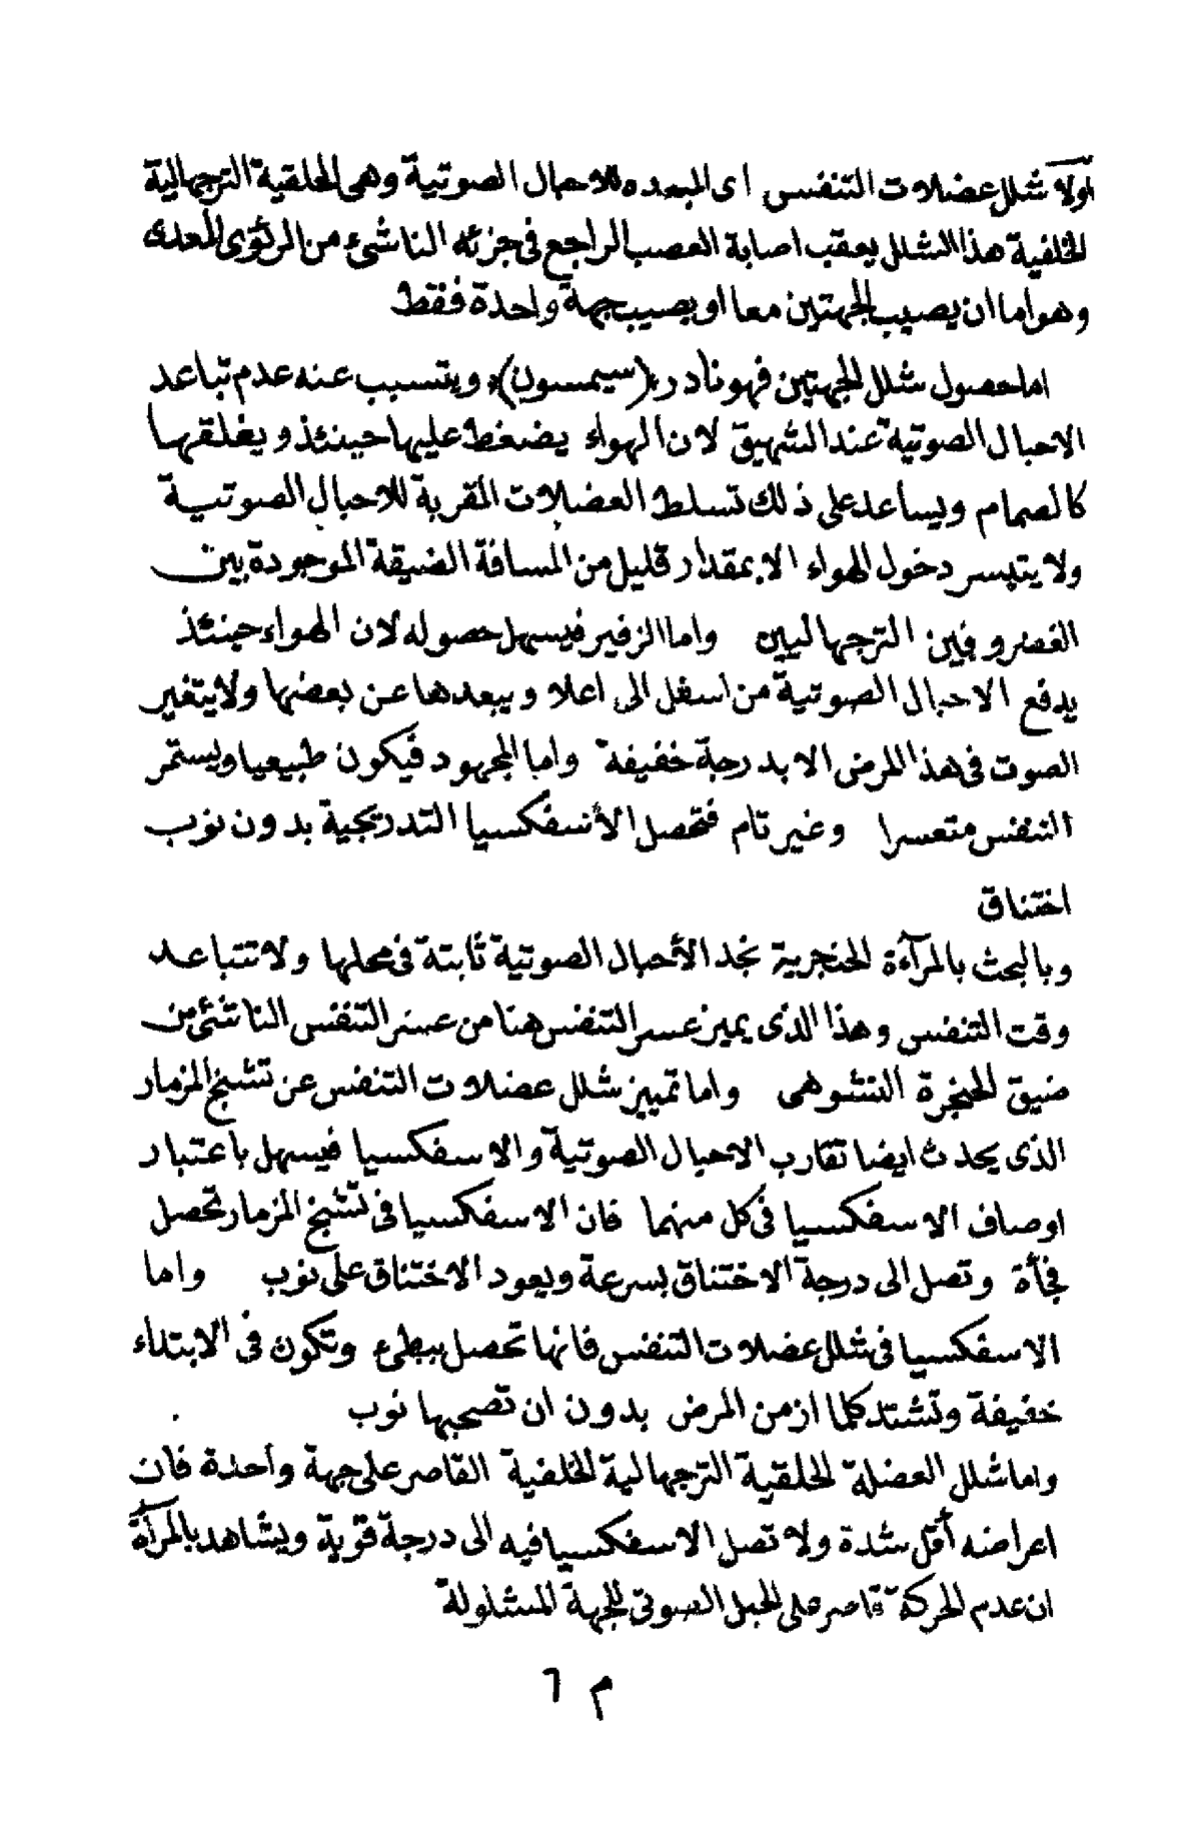 اولا شلل عضلات التنفس اى المبعده للاحبال الصوتية وهى الحلقية الترجهالية
الخلفية هذا الشلل يعقب اصابة العصب الراجع فى جزئه الناشئ من الرئوى المعدى
وهو اما ان يصيب الجهتين معا او يصيب جهة واحدة فقط
اما حصول شلل الجهتين فهو نادر (سيمسون) ويتسبب عنه عدم تباعد
الاحبال الصوتية عند الشهيق لان الهواء يضغط عليها حينئذ ويغلقها
كالصمام ويساعد على ذلك تسلط العضلات المقربة للاحبال الصوتية
ولا يتيسر دخول الهواء الا بمقدار قليل من المسافة الضيقة الموجودة بين
الغضروفين الترجهاليين واما الزفير فيسهل حصوله لان الهواء حينئذ
يدفع الاحبال الصوتية من اسفل الى اعلا ويبعدها عن بعضها ولا يتغير
الصوت فى هذا المرض الا بدرجة خفيفة واما المجهود فيكون طبيعيا ويستمر
التنفس متعسرا وغير تام فتحصل الأسفكسيا التدريجية بدون نوب
اختناق
وبالبحث بالمرآءة الحنجرية نجد الأحبال الصوتية ثابتة فى محلها ولا تتباعد
وقت التنفس وهذا الذى يميز عسر التنفس هنا من عسر التنفس الناشئ من
ضيق الحنجرة التشوهى واما تمييز شلل عضلات التنفس عن تشنج المزمار
الذى يحدث ايضا تقارب الاحبال الصوتية والاسفكسيا فيسهل باعتبار
اوصاف الاسفكسيا فى كل منهما فان الاسفكسيا فى تشنج المزمار تحصل
فجأة وتصل الى درجة الاختناق بسرعة ويعود الاختناق على نوب واما
الاسفكسيا فى شلل عضلات التنفس فانها تحصل ببطئ وتكون فى الابتداء
خفيفة وتشتد كلما ازمن المرض بدون ان تصحبها نوب
واما شلل العضلة الحلقية الترجهالية الخلفية القاصر على جهة واحدة فان
اعراضه أقل شدة ولا تصل الاسفكسيا فيه الى درجة قوية ويشاهد بالمرآة
ان عدم الحركة قاصر على الحبل الصوتى للجهة المشلولة
م ٦